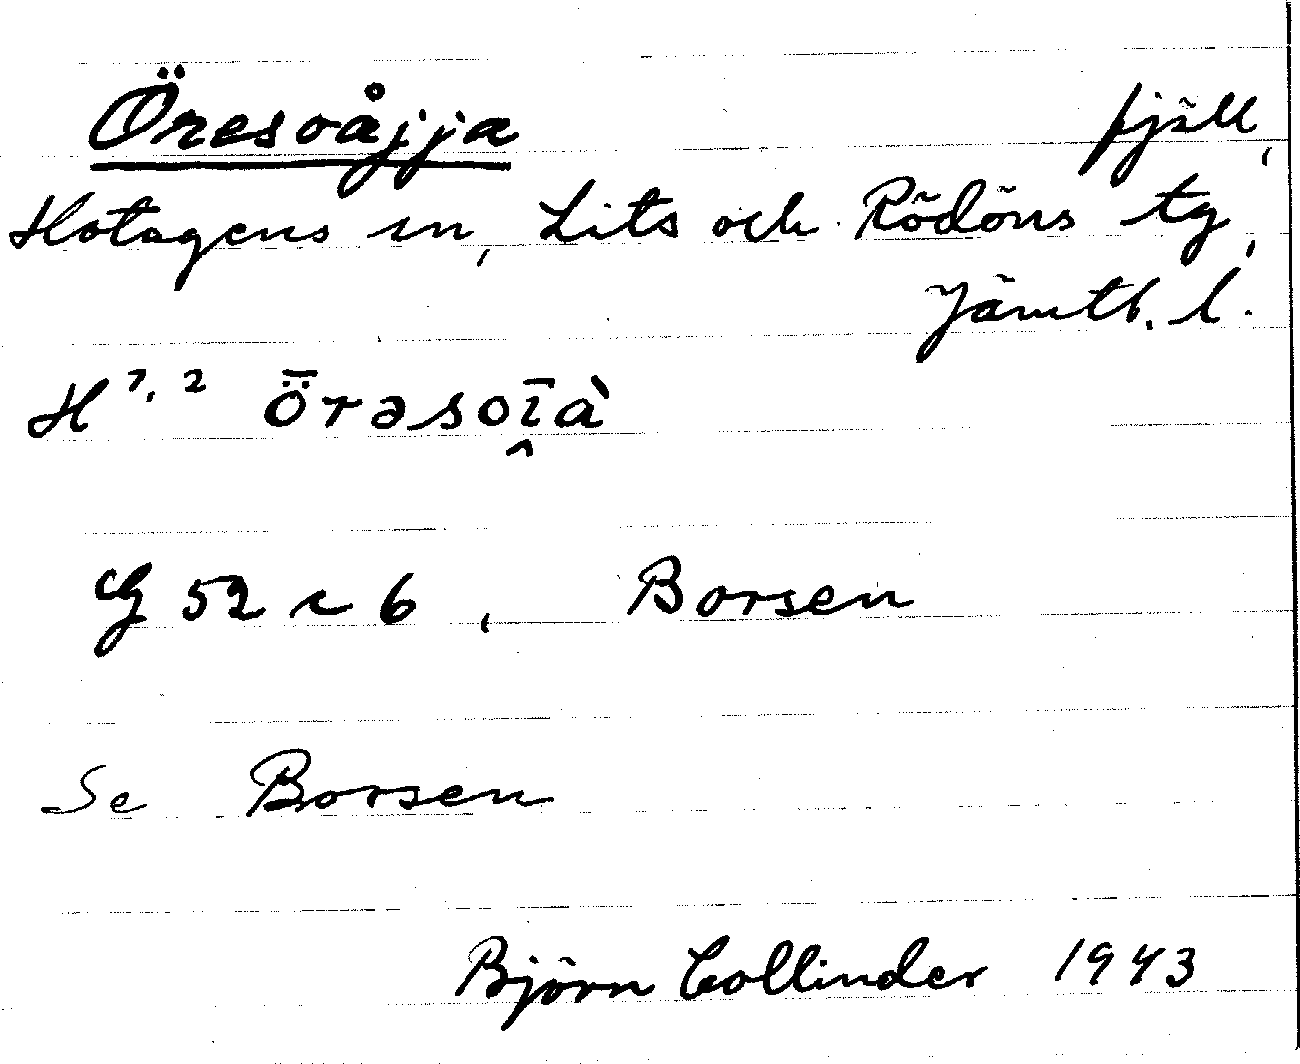 Öresoåjja fjäll,
Hotagens sn, Lits och Rödöns tg,
Jämtl. l.
H 1, 2 ȫrəsoī̭à
G 52 c 6, Borsen
Se Borsen
Björn Collinder 1943